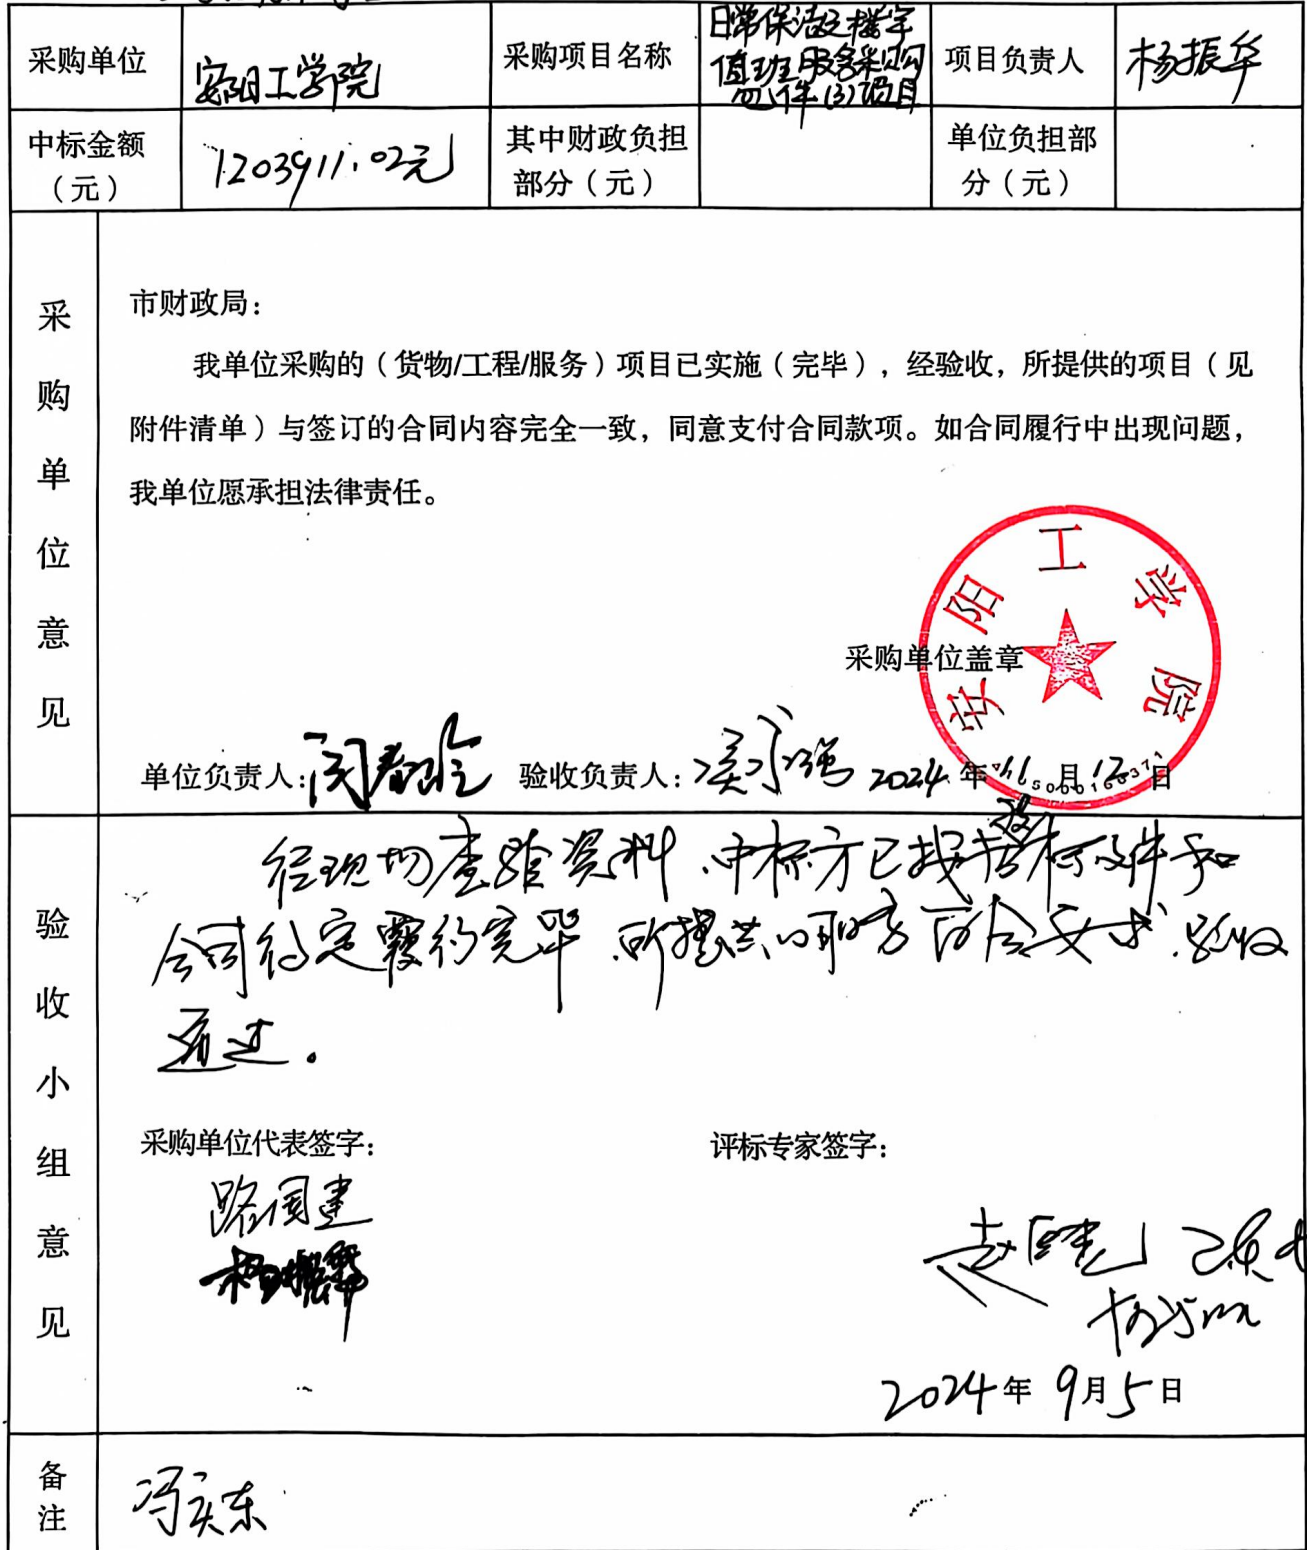 采购单位
安阳工学院
采购项目名称
日常保洁及楼宇
值班服务采购
包件(3)项目
项目负责人
杨振华
中标金额
（元）
1203911.02元
其中财政负担
部分（元）
单位负担部
分（元）
采购单位意见
市财政局：
我单位采购的（货物/工程/服务）项目已实施（完毕），经验收，所提供的项目（见
附件清单）与签订的合同内容完全一致，同意支付合同款项。如合同履行中出现问题，
我单位愿承担法律责任。
安阳工学院
采购单位盖章
单位负责人：
验收负责人：
2024年11月12日
验收小组意见
经现场查验资料，中标方已按投标文件和
合同约定履约完毕，所提供的服务符合要求，验收
通过。
采购单位代表签字：
评标专家签字：
路国建
杨振华
2024年9月5日
备注